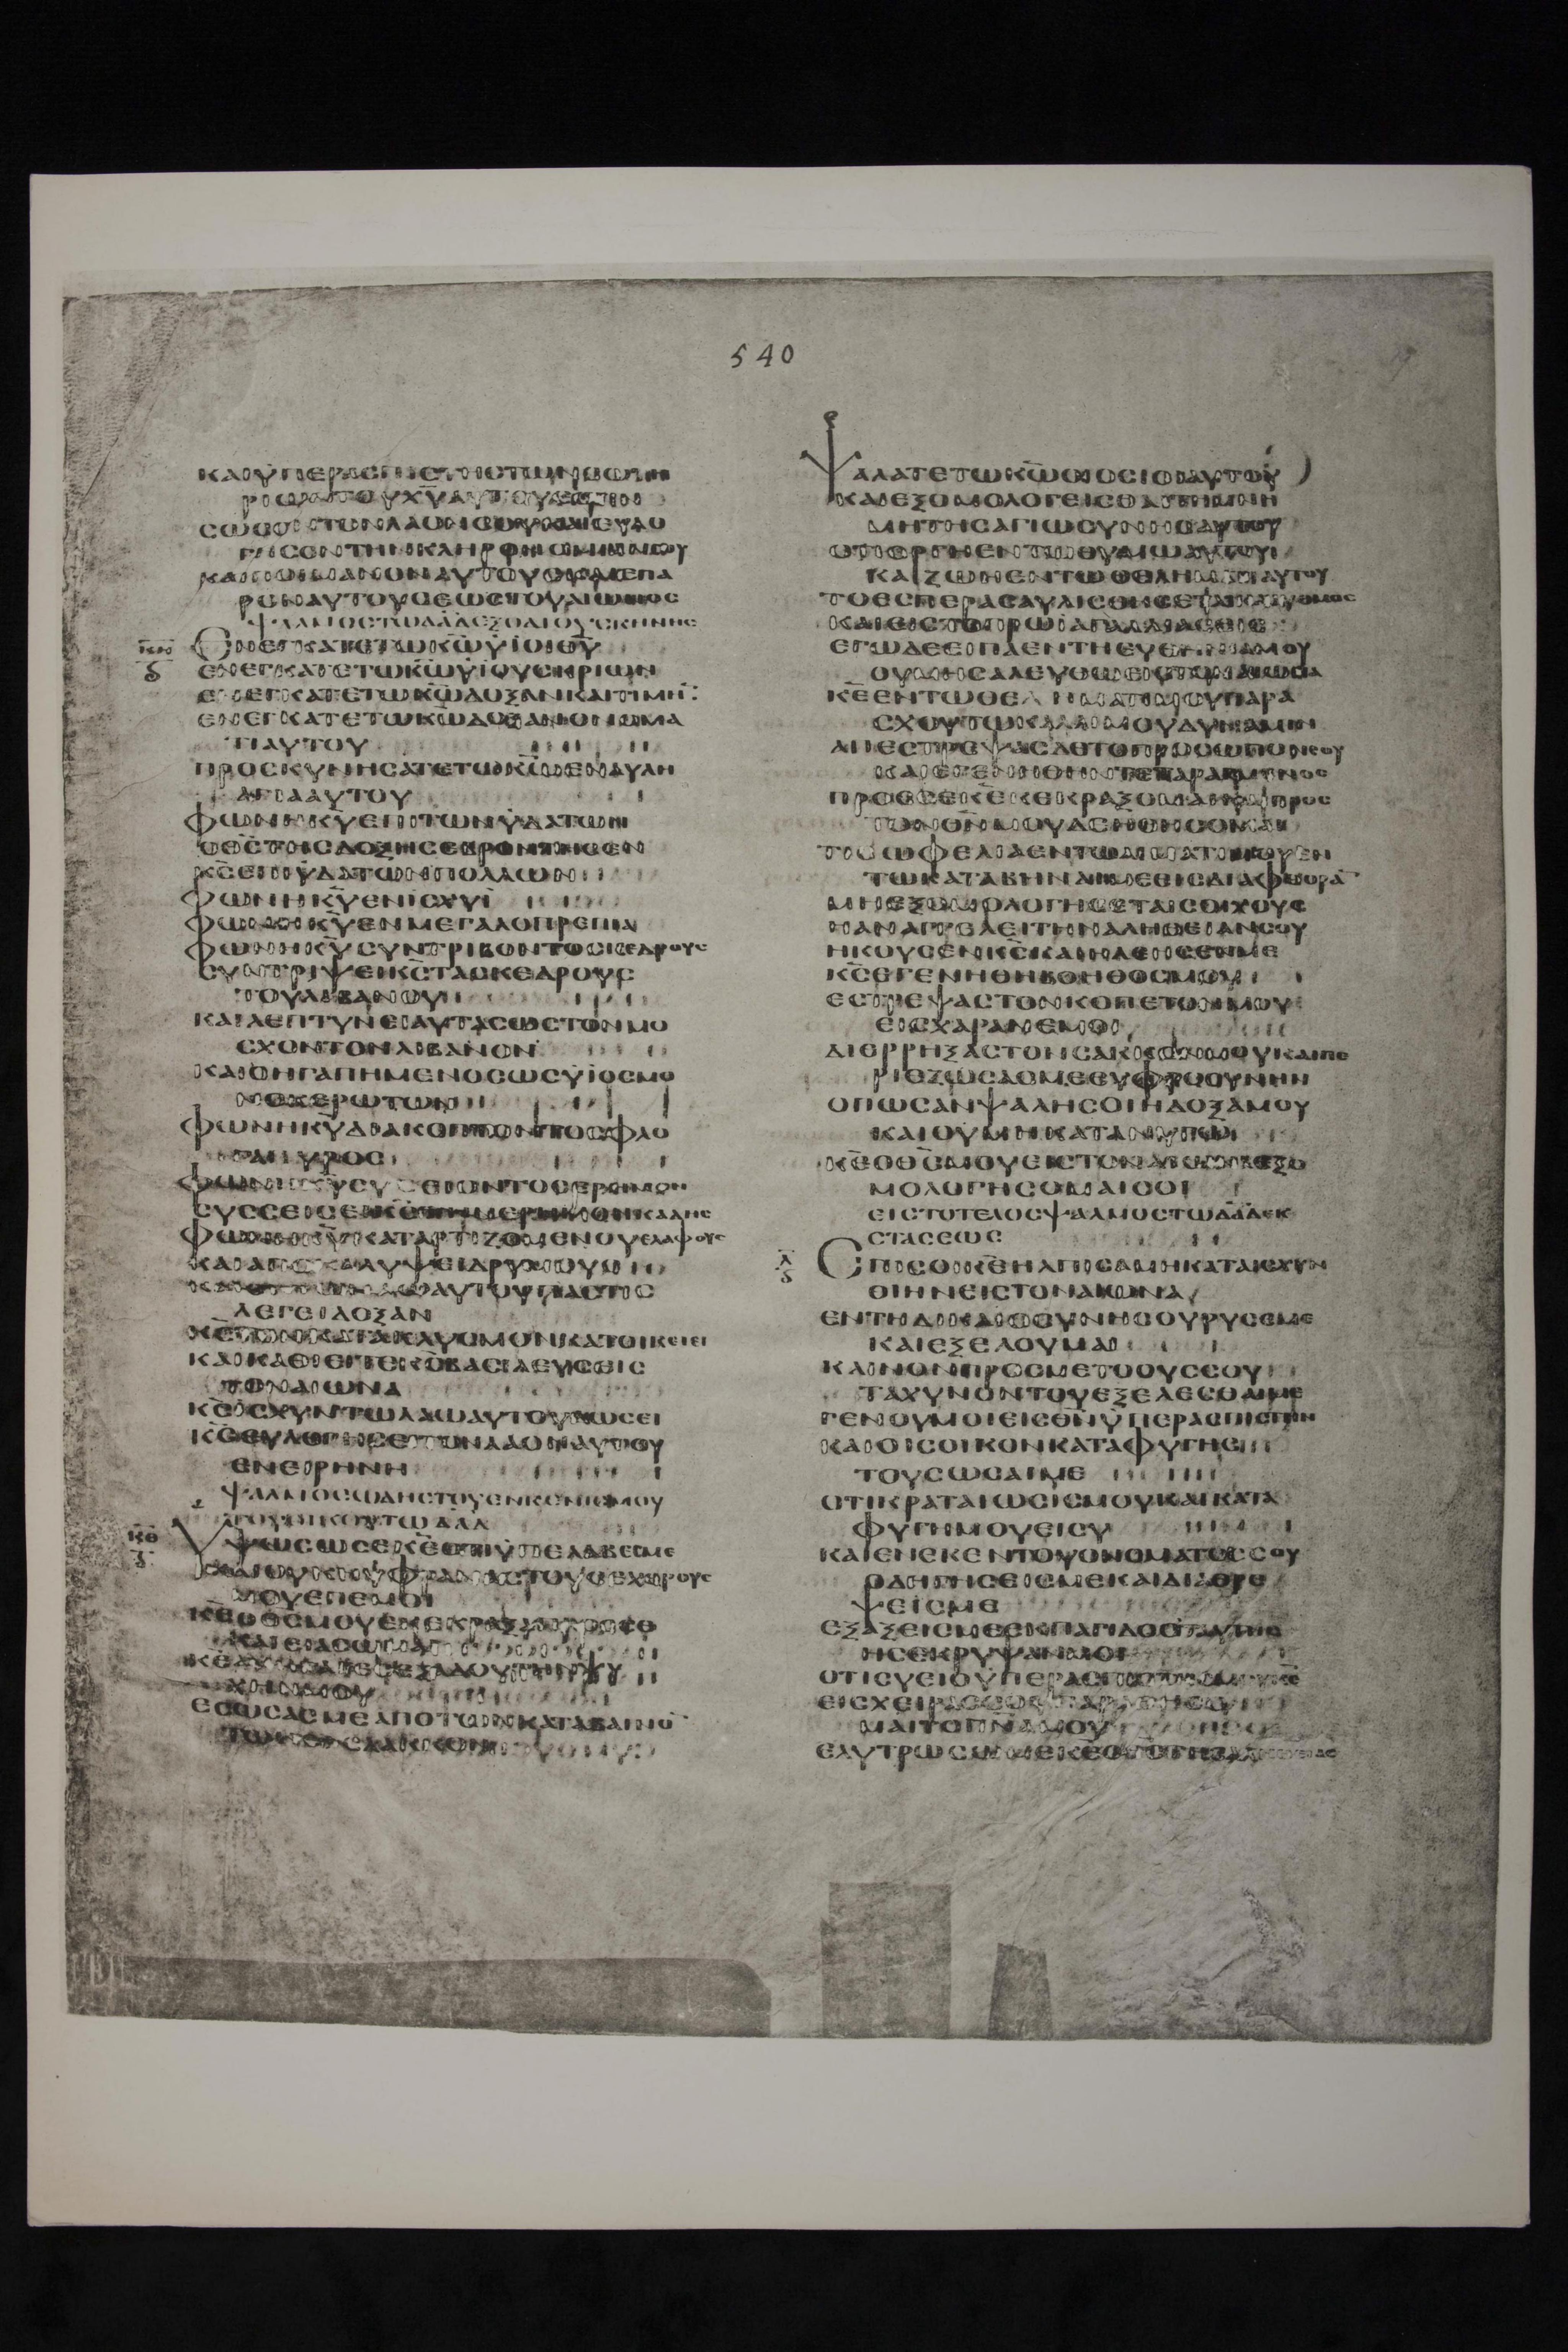 540
ΚΑΙΥΠΕΡΑΣΠΙΣΤΗΣΤΩΝΣΩΤΗ
ΡΙΩΝΤΟΥΧΥΑΥΤΟΥΕΣΤΙΝ
ΣΩΣΟΝΤΟΝΛΑΟΝΣΟΥΚΑΙΕΥΛΟ
ΓΗΣΟΝΤΗΝΚΛΗΡΟΝΟΜΙΑΝΣΟΥ
ΚΑΙΠΟΙΜΑΝΟΝΑΥΤΟΥΣΚΑΙΕΠΑ
ΡΟΝΑΥΤΟΥΣΕΩΣΤΟΥΑΙΩΝΟΣ
ΨΑΛΜΟΣΤΩΔΑΔΕΞΟΔΙΟΥΣΚΗΝΗΣ
ΚΗ
ΕΝΕΓΚΑΤΕΤΩΚΩΥΙΟΙΘΥ
ΕΝΕΓΚΑΤΕΤΩΚΩΥΙΟΥΣΚΡΙΩΝ
ΕΝΕΓΚΑΤΕΤΩΚΩΔΟΞΑΝΚΑΙΤΙΜΗ
ΕΝΕΓΚΑΤΕΤΩΚΩΔΟΞΑΝΟΝΟΜΑ
ΤΙΑΥΤΟΥ
ΠΡΟΣΚΥΝΗΣΑΤΕΤΩΚΩΕΝΑΥΛΗ
ΑΓΙΑΑΥΤΟΥ
ΦΩΝΗΚΥΕΠΙΤΩΝΥΔΑΤΩΝ
ΟΘΣΤΗΣΔΟΞΗΣΕΒΡΟΝΤΗΣΕΝ
ΚΣΕΠΙΥΔΑΤΩΝΠΟΛΛΩΝ
ΦΩΝΗΚΥΕΝΙΣΧΥΙ
ΦΩΝΗΚΥΕΝΜΕΓΑΛΟΠΡΕΠΙΑ
ΦΩΝΗΚΥΣΥΝΤΡΙΒΟΝΤΟΣΚΕΔΡΟΥΣ
ΣΥΝΤΡΙΨΕΙΚΣΤΑΣΚΕΔΡΟΥΣ
ΤΟΥΛΙΒΑΝΟΥ
ΚΑΙΛΕΠΤΥΝΕΙΑΥΤΑΣΩΣΤΟΝΜΟ
ΣΧΟΝΤΟΝΛΙΒΑΝΟΝ
ΚΑΙΟΗΓΑΠΗΜΕΝΟΣΩΣΥΙΟΣΜΟ
ΝΟΚΕΡΩΤΩΝ
ΦΩΝΗΚΥΔΙΑΚΟΠΤΟΝΤΟΣΦΛΟ
ΓΑΠΥΡΟΣ
ΦΩΝΗΚΥΣΥΣΣΕΙΟΝΤΟΣΕΡΗΜΟΝ
ΣΥΣΣΕΙΣΕΙΚΣΤΗΝΕΡΗΜΟΝΚΑΔΗΣ
ΦΩΝΗΚΥΚΑΤΑΡΤΙΖΟΜΕΝΟΥΕΛΑΦΟΥΣ
ΚΑΙΑΠΟΚΑΛΥΨΕΙΔΡΥΜΟΥΣ
ΚΑΙΕΝΤΩΝΑΩΑΥΤΟΥΠΑΣΤΙΣ
ΛΕΓΕΙΔΟΞΑΝ
ΚΣΤΟΝΚΑΤΑΚΛΥΣΜΟΝΚΑΤΟΙΚΕΙΕΙ
ΚΑΙΚΑΘΙΕΙΤΕΚΣΒΑΣΙΛΕΥΣΕΙΣ
ΤΟΝΑΙΩΝΑ
ΚΣΙΣΧΥΝΤΩΛΑΩΑΥΤΟΥΔΩΣΕΙ
ΚΣΕΥΛΟΓΗΣΕΙΤΟΝΛΑΟΝΑΥΤΟΥ
ΕΝΕΙΡΗΝΗ
ΨΑΛΜΟΣΩΔΗΣΤΟΥΕΝΚΕΝΙΣΜΟΥ
ΤΟΥΟΙΚΟΥΤΩΔΑΔ
ΚΘ
ΥΨΩΣΩΣΕΚΕΟΤΙΥΠΕΛΑΒΕΣΜΕ
ΚΑΙΟΥΚΗΥΦΡΑΝΑΣΤΟΥΣΕΧΘΡΟΥΣ
ΜΟΥΕΠΕΜΟΙ
ΚΕΟΘΣΜΟΥΕΚΕΚΡΑΞΑΠΡΟΣΣΕ
ΚΑΙΕΙΑΣΩ
ΚΕΑΝΗΓΑΓΕΣΕΞΑΔΟΥΤΗΝΨΥ
ΧΗΝΜΟΥ
ΕΣΩΣΑΣΜΕΑΠΟΤΩΝΚΑΤΑΒΑΙΝΟ
ΤΩΝΕΙΣΛΑΚΚΟΝ
ΨΑΛΑΤΕΤΩΚΩΟΙΟΣΙΟΙΑΥΤΟΥ
ΚΑΙΕΞΟΜΟΛΟΓΕΙΣΘΑΙΤΗΜΝΗ
ΜΗΤΗΣΑΓΙΩΣΥΝΗΣΑΥΤΟΥ
ΟΤΙΟΡΓΗΕΝΤΩΘΥΜΩΑΥΤΟΥ
ΚΑΙΖΩΗΕΝΤΩΘΕΛΗΜΑΤΙΑΥΤΟΥ
ΤΟΕΣΠΕΡΑΣΑΥΛΙΣΘΗΣΕΤΑΙΚΛΑΥΘΜΟΣ
ΚΑΙΕΙΣΤΟΠΡΩΙΑΓΑΛΛΙΑΣΙΣ
ΕΓΩΔΕΕΙΠΑΕΝΤΗΕΥΘΗΝΙΑΜΟΥ
ΟΥΜΗΣΑΛΕΥΘΩΕΙΣΤΟΝΑΙΩΝΑ
ΚΕΕΝΤΩΘΕΛΗΜΑΤΙΣΟΥΠΑΡΑ
ΣΧΟΥΤΩΚΑΛΛΙΜΟΥΔΥΝΑΜΙΝ
ΑΠΕΣΤΡΕΨΑΣΔΕΤΟΠΡΟΣΩΠΟΝΣΟΥ
ΚΑΙΕΓΕΝΗΘΗΝΤΕΤΑΡΑΓΜΕΝΟΣ
ΠΡΟΣΣΕΚΕΚΕΚΡΑΞΟΜΑΙΚΑΙΠΡΟΣ
ΤΟΝΘΝΜΟΥΔΕΗΘΗΣΟΜΑΙ
ΤΙΣΩΦΕΛΙΑΕΝΤΩΑΙΜΑΤΙΜΟΥΕΝ
ΤΩΚΑΤΑΒΗΝΑΙΜΕΕΙΣΔΙΑΦΘΟΡΑ
ΜΗΕΞΟΜΟΛΟΓΗΣΕΤΑΙΣΟΙΧΟΥΣ
ΗΑΝΑΓΓΕΛΕΙΤΗΝΑΛΗΘΕΙΑΝΣΟΥ
ΗΚΟΥΣΕΝΚΣΚΑΙΗΛΕΗΣΕΝΜΕ
ΚΣΕΓΕΝΗΘΗΒΟΗΘΟΣΜΟΥ
ΕΣΤΡΕΨΑΣΤΟΝΚΟΠΕΤΟΝΜΟΥ
ΕΙΣΧΑΡΑΝΕΜΟΙ
ΔΙΕΡΡΗΞΑΣΤΟΝΣΑΚΚΟΝΜΟΥΚΑΙΠΕ
ΡΙΕΖΩΣΑΣΜΕΕΥΦΡΟΣΥΝΗΝ
ΟΠΩΣΑΝΨΑΛΗΣΟΙΗΔΟΞΑΜΟΥ
ΚΑΙΟΥΜΗΚΑΤΑΝΥΓΩ
ΚΕΟΘΣΜΟΥΕΙΣΤΟΝΑΙΩΝΑΕΞΟ
ΜΟΛΟΓΗΣΟΜΑΙΣΟΙ
ΕΙΣΤΟΤΕΛΟΣΨΑΛΜΟΣΤΩΔΑΔΕΚ
ΣΤΑΣΕΩΣ
Λ
ΕΠΙΣΟΙΚΕΗΛΠΙΣΑΜΗΚΑΤΑΙΣΧΥΝ
ΘΙΗΝΕΙΣΤΟΝΑΙΩΝΑ
ΕΝΤΗΔΙΚΑΙΟΣΥΝΗΣΟΥΡΥΣΕΜΕ
ΚΑΙΕΞΕΛΟΥΜΑΙ
ΚΛΙΝΟΝΠΡΟΣΜΕΤΟΟΥΣΣΟΥ
ΤΑΧΥΝΟΝΤΟΥΕΞΕΛΕΣΘΑΙΜΕ
ΓΕΝΟΥΜΟΙΕΙΣΘΝΥΠΕΡΑΣΠΙΣΤΗΝ
ΚΑΙΟΙΣΟΙΚΟΝΚΑΤΑΦΥΓΗΣ
ΤΟΥΣΩΣΑΙΜΕ
ΟΤΙΚΡΑΤΑΙΩΣΙΣΜΟΥΚΑΙΚΑΤΑ
ΦΥΓΗΜΟΥΕΙΣΥ
ΚΑΙΕΝΕΚΕΝΤΟΥΟΝΟΜΑΤΟΣΣΟΥ
ΟΔΗΓΗΣΕΙΣΜΕΚΑΙΔΙΑΘΡΕ
ΨΕΙΣΜΕ
ΕΞΑΞΕΙΣΜΕΕΚΠΑΓΙΔΟΣΤΑΥΤΗΣ
ΗΣΕΚΡΥΨΑΝΜΟΙ
ΟΤΙΣΥΕΙΟΥΠΕΡΑΣΠΙΣΤΗΣΜΟΥ
ΕΙΣΧΕΙΡΑΣΣΟΥΠΑΡΑΘΗΣΟ
ΜΑΙΤΟΠΝΑΜΟΥ
ΕΛΥΤΡΩΣΩΜΕΚΕΟΘΣΤΗΣΑΛΗΘΕΙΑΣ